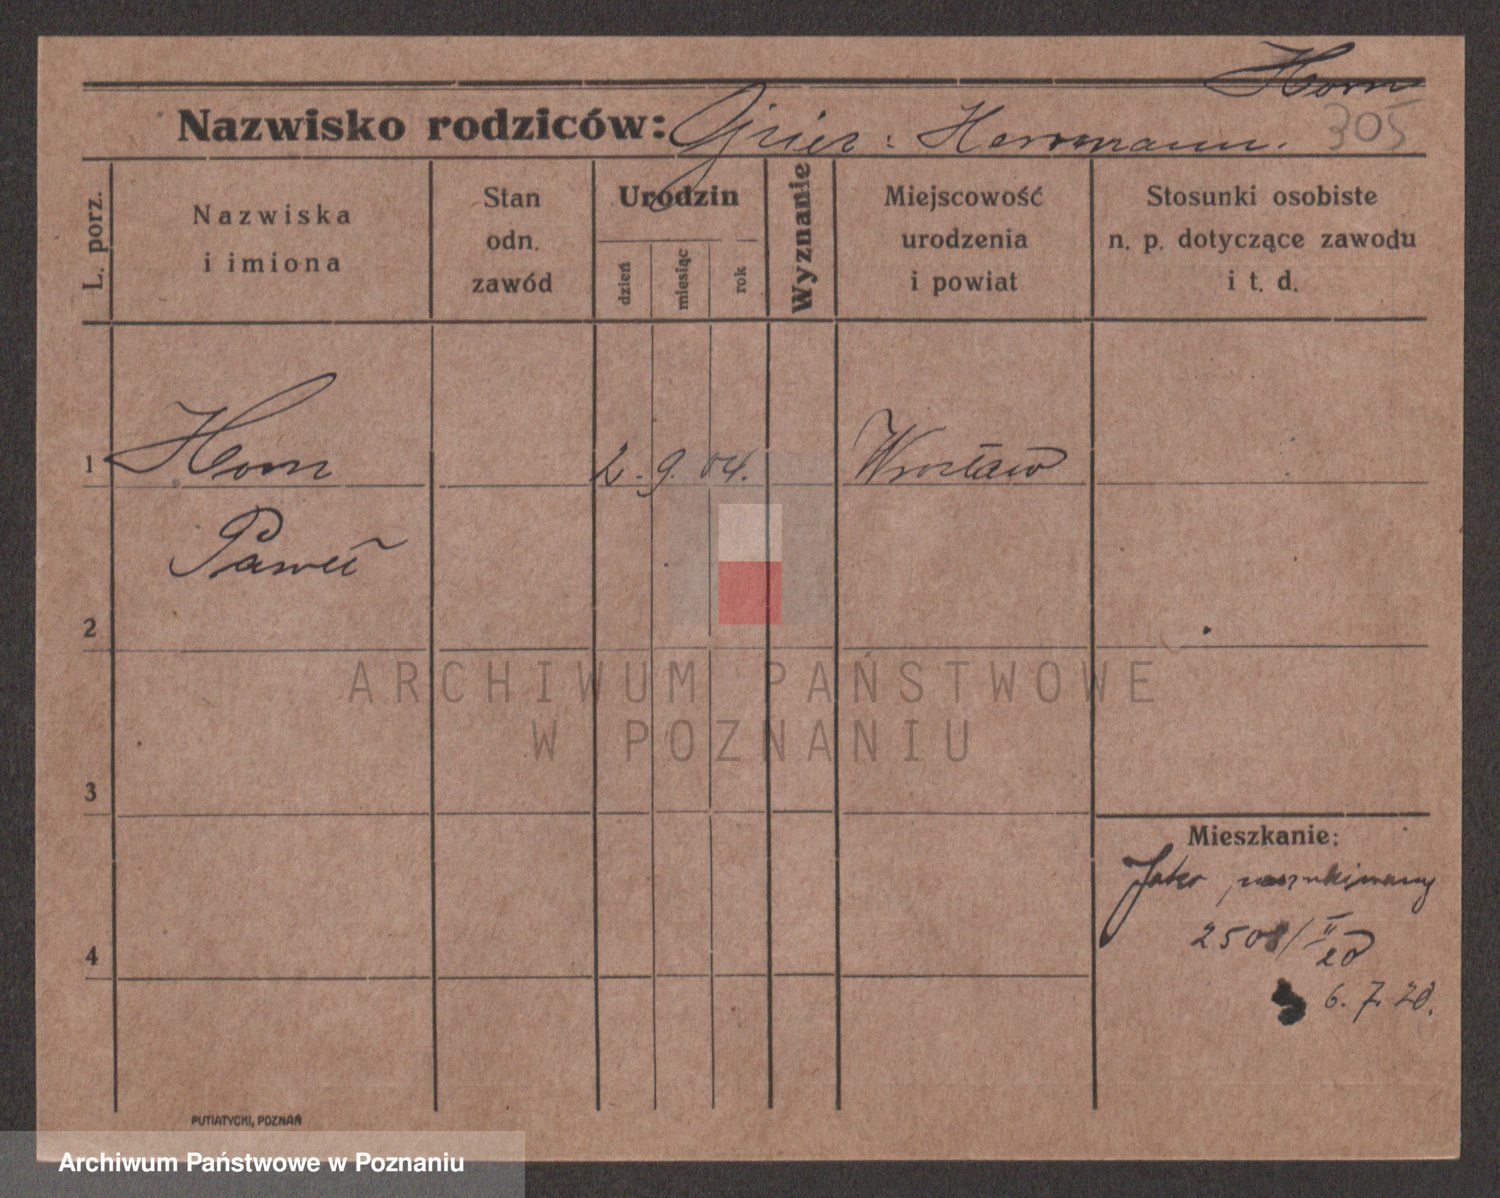 Horn
Nazwisko rodziców: Herrmann. 305
L. porz.
Nazwiska
i imiona
Stan
odn.
zawód
Urodzin
dzień
miesiąc
rok
Wyznanie
Miejscowość
urodzenia
i powiat
Stosunki osobiste
n. p. dotyczące zawodu
i t. d.
1 Horn 2. 9. 04. Wrocław
Paweł
2
3
4
Mieszkanie:
Jako poszukiwany
2508/II
20
6. 7. 20.
PUTIATYCKI, POZNAŃ
ARCHIWUM PAŃSTWOWE
W POZNANIU
Archiwum Państwowe w Poznaniu